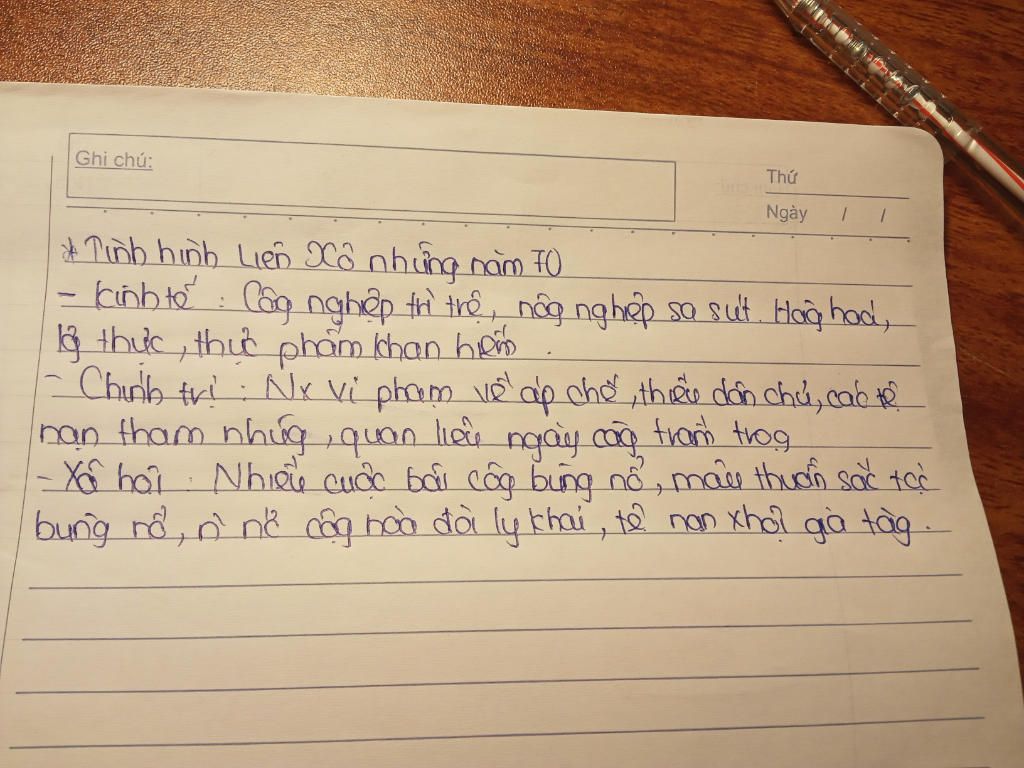 Ghi chú:
Thứ
Ngày / /
* Tình hình Liên Xô những năm 70
- Kinh tế : Côg nghiệp trì trệ, nôg nghiệp sa sút. Hàg hoá,
lg thực, thực phẩm khan hiếm.
- Chính trị : Nx vi phạm về áp chế, thiếu dân chủ, các tệ
nạn tham nhũg, quan liêu ngày càg trầm trọg
- Xã hội : Nhiều cuộc bãi côg bùng nổ, mâu thuẫn sắc tộc
bùng nổ, n` nc cộg hoà đòi ly khai, tệ nạn xhội gia tăg.